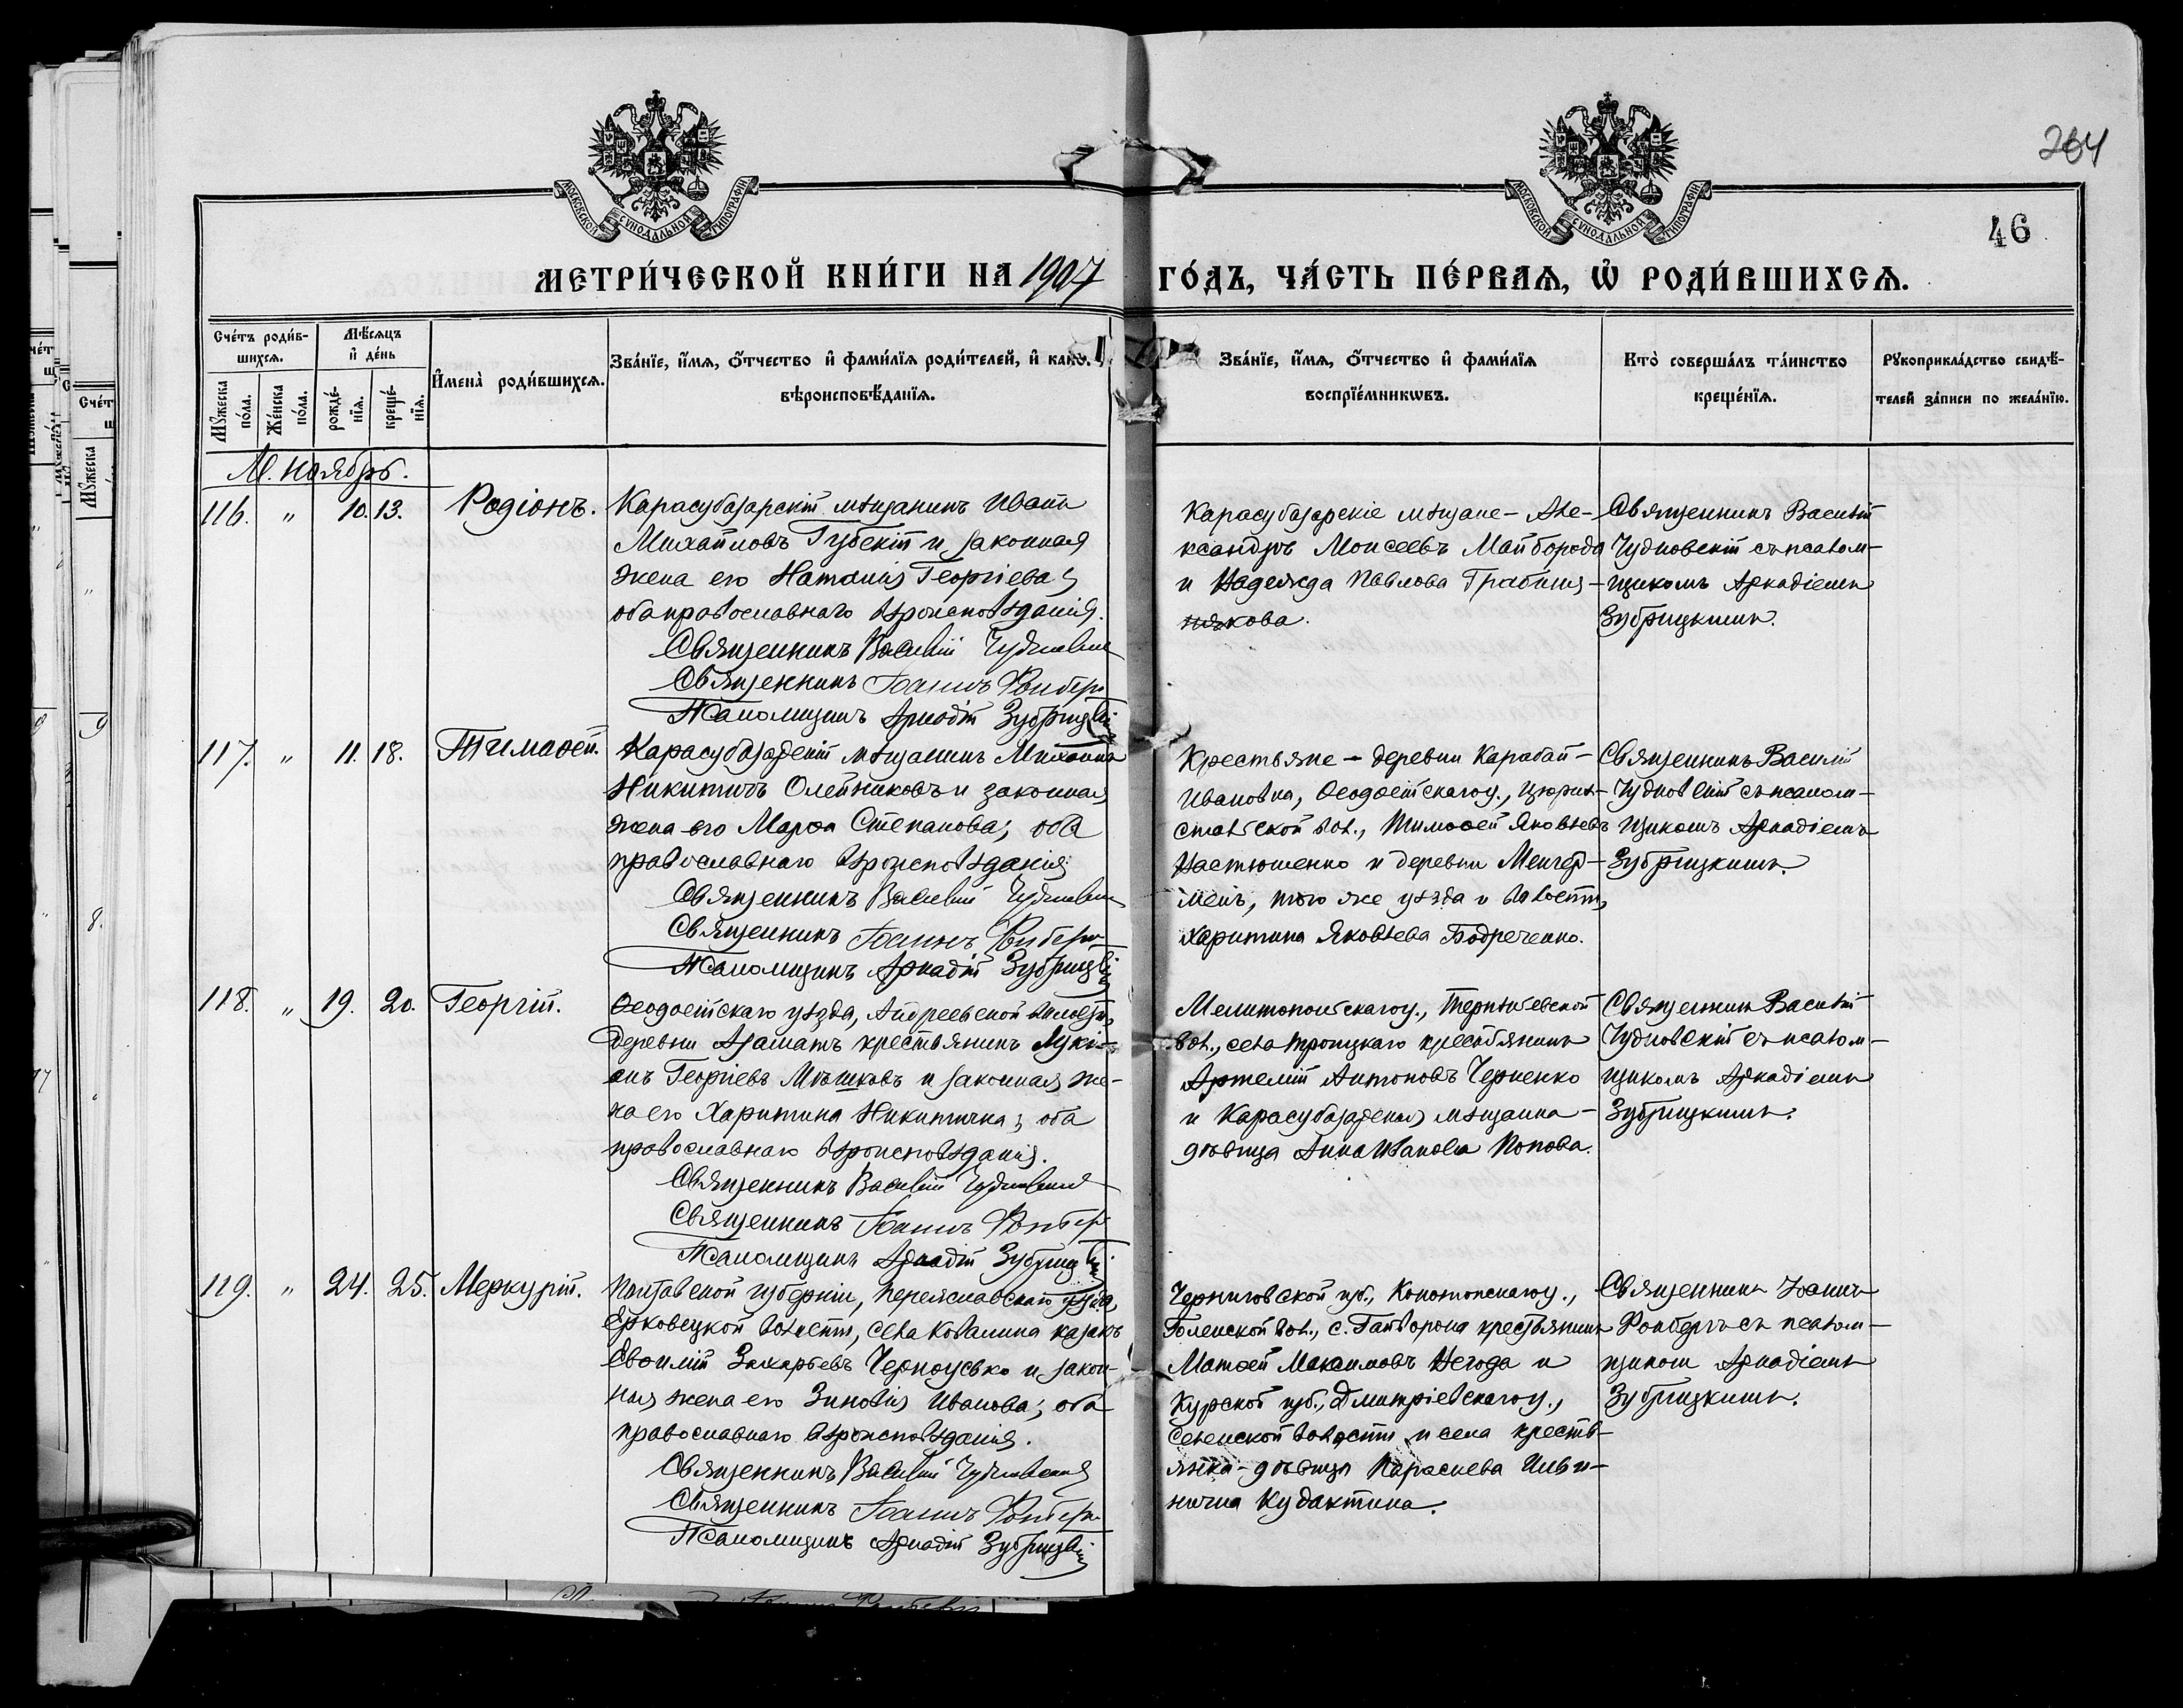 264
46
МОСКОВСКОЙ СѴНОДАЛЬНОЙ ТИПОГРАФІИ
МОСКОВСКОЙ СѴНОДАЛЬНОЙ ТИПОГРАФІИ
МЕТРИ́ЧЕСКОЙ КНИ́ГИ НА 1907 ГО́ДЪ, ЧА́СТЬ ПЕ́РВАѦ, Ѡ҆ РОДИ́ВШИХСѦ.
Сче́тъ роди́в-
шихсѧ.
Мꙋ́жеска
по́ла.
Же́нска
по́ла.
Мѣ́сѧцъ
и҆ де́нь
рожде́-
нїѧ.
креще́-
нїѧ.
И҆мена̀ роди́вшихсѧ.
Зва́нїе, и҆́мѧ, ѻ҆́тчество и҆ фами́лїѧ роди́телей, и҆ како́гѡ
вѣроисповѣ́данїѧ.
Зва́нїе, и҆́мѧ, ѻ҆́тчество и҆ фами́лїѧ
воспрїе́мникѡвъ.
Кто̀ соверша́лъ та́инство
креще́нїѧ.
Рꙋкоприкла́дство свидѣ́-
телей за́писи по жела́нїю.
М. Ноябрь.
116. " 10. 13. Родіонъ.
Карасубазарскій мѣщанинъ Иванъ
Михайловъ Губскій и законная
жена его Наталія Георгіева;
оба православнаго вѣроисповѣданія.
Священникъ Василій Чудновскій
Священникъ Іоаннъ Фонберг
Псаломщикъ Аркадій Зубрицкій
Карасубазарскіе мѣщане - Але-
ксандръ Моисеевъ Майборода
и Надежда Павлова
кова.
Священникъ Василій
Чудновскій съ псалом-
щикомъ Аркадіемъ
Зубрицкимъ.
117. " 11. 18. Тимоѳей.
Карасубазарскій мѣщанинъ Михаилъ
Никитинъ Олейниковъ и законная
жена его Марѳа Степанова; оба
православнаго вѣроисповѣданія
Священникъ Василій Чудновскій
Священникъ Іоаннъ Фонберг
Псаломщикъ Аркадій Зубрицкій
Крестьяне - деревни Карабай-
Ивановка, Ѳеодосійскаго у., Цюрих-
стальской вол., Тимоѳей Яковлевъ
Настюшенко и деревни Менгер-
менъ, того же уѣзда и волости,
Харитина Яковлева Бодреченко.
Священникъ Василій
Чудновскій съ псалом-
щикомъ Аркадіемъ
Зубрицкимъ.
118. " 19. 20. Георгій.
Ѳеодосійскаго уѣзда, Андреевской волости,
деревни Азаматъ крестьянинъ Лукі-
анъ Георгіевъ Мѣшковъ и законная же-
на его Харитина Никитична; оба
православнаго вѣроисповѣданія.
Священникъ Василій Чудновскій
Священникъ Іоаннъ Фонберг
Псаломщикъ Аркадій Зубрицкій
Мелитопольскаго у., Терпѣньевской
вол., села Троицкаго крестьянинъ
Артемій Антоновъ Черненко
и Карасубазарская мѣщанка -
дѣвица Анна Иванова Попова.
Священникъ Василій
Чудновскій съ псалом-
щикомъ Аркадіемъ
Зубрицкимъ.
119. " 24. 25. Меркурій.
Полтавской губерніи, Переяславскаго уѣзда,
Ерковецкой волости, села Ковалина казакъ
Евѳимій Захарьевъ Черноусько и закон-
ная жена его Зиновія Иванова; оба
православнаго вѣроисповѣданія.
Священникъ Василій Чудновскій
Священникъ Іоаннъ Фонберг
Псаломщикъ Аркадій Зубрицкій
Черниговской губ., Конотопскаго у.,
Голенской вол., с. Гайворона крестьянинъ
Матѳей Максимовъ Негода и
Курской губ., Дмитріевскаго у.,
Селенской волости и села кресть-
янка - дѣвица Параскева
нична Кудактина.
Священникъ Іоаннъ
Фонбергъ съ псалом-
щикомъ Аркадіемъ
Зубрицкимъ.